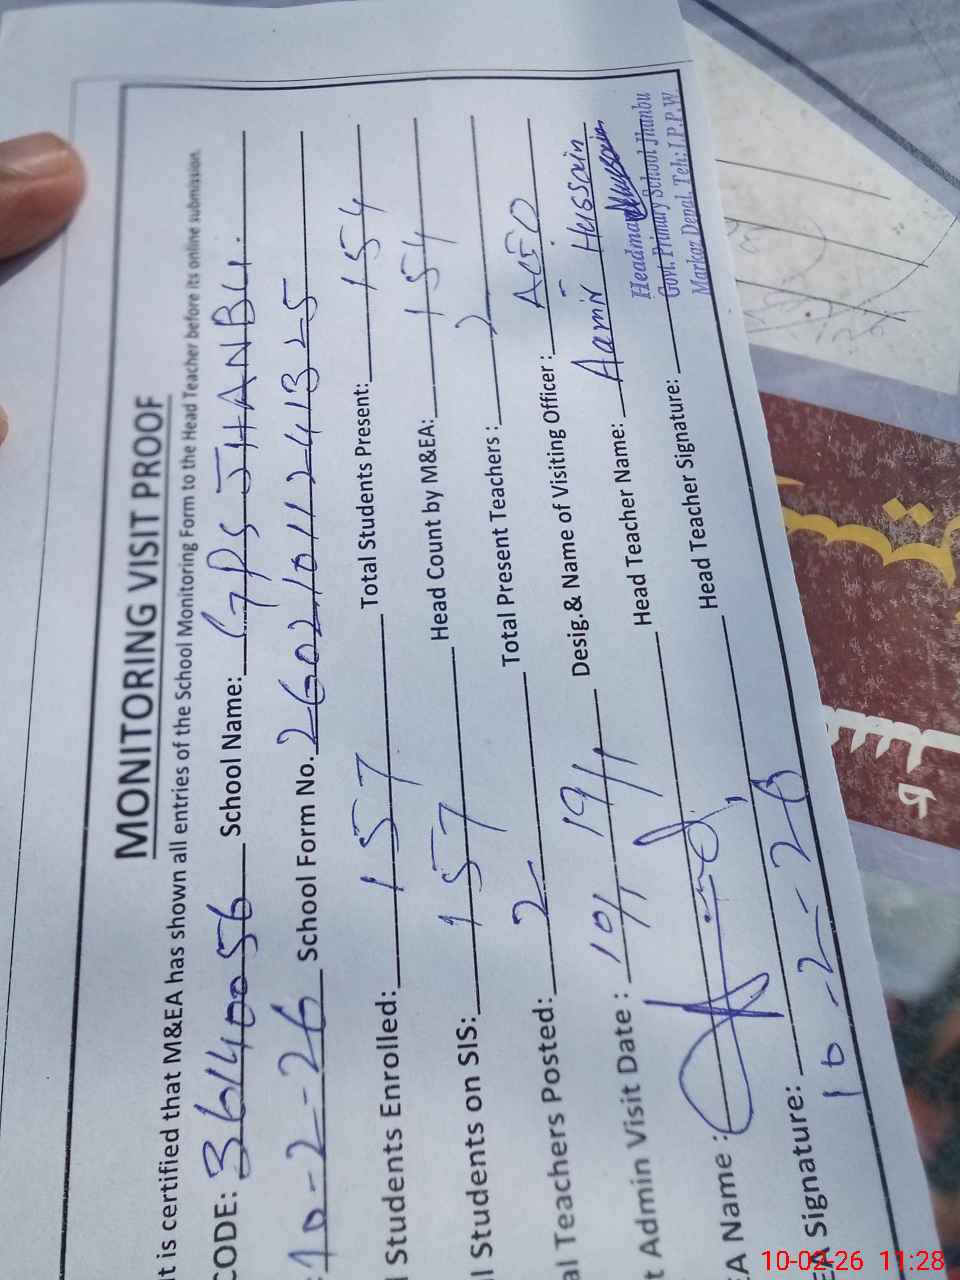 MONITORING VISIT PROOF
It is certified that M&EA has shown all entries of the School Monitoring Form to the Head Teacher before its online submission.
CODE: 36140056 School Name: GPS JHANBU.
: 10-2-26 School Form No. 26021011241325
l Students Enrolled: 157 Total Students Present: 154
l Students on SIS: 157 Head Count by M&EA: 154
al Teachers Posted: 2 Total Present Teachers : 2
t Admin Visit Date : Desig.& Name of Visiting Officer : AEO
EA Name : Head Teacher Name: Aamir Hussain
EA Signature: Head Teacher Signature:
10-2-26
Headma
Govt. Primary School Jhanbu
Markaz Depal, Teh: J.P.P.W
10-02-26 11:28